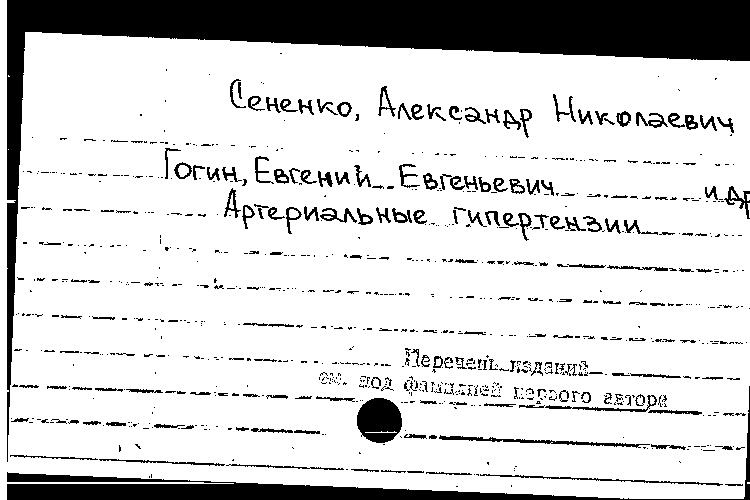 Сененко, Александр Николаевич
Гогин, Евгений Евгеньевич и др
Артериальные гипертензии
Перечень изданий
см. под фамилией первого автора